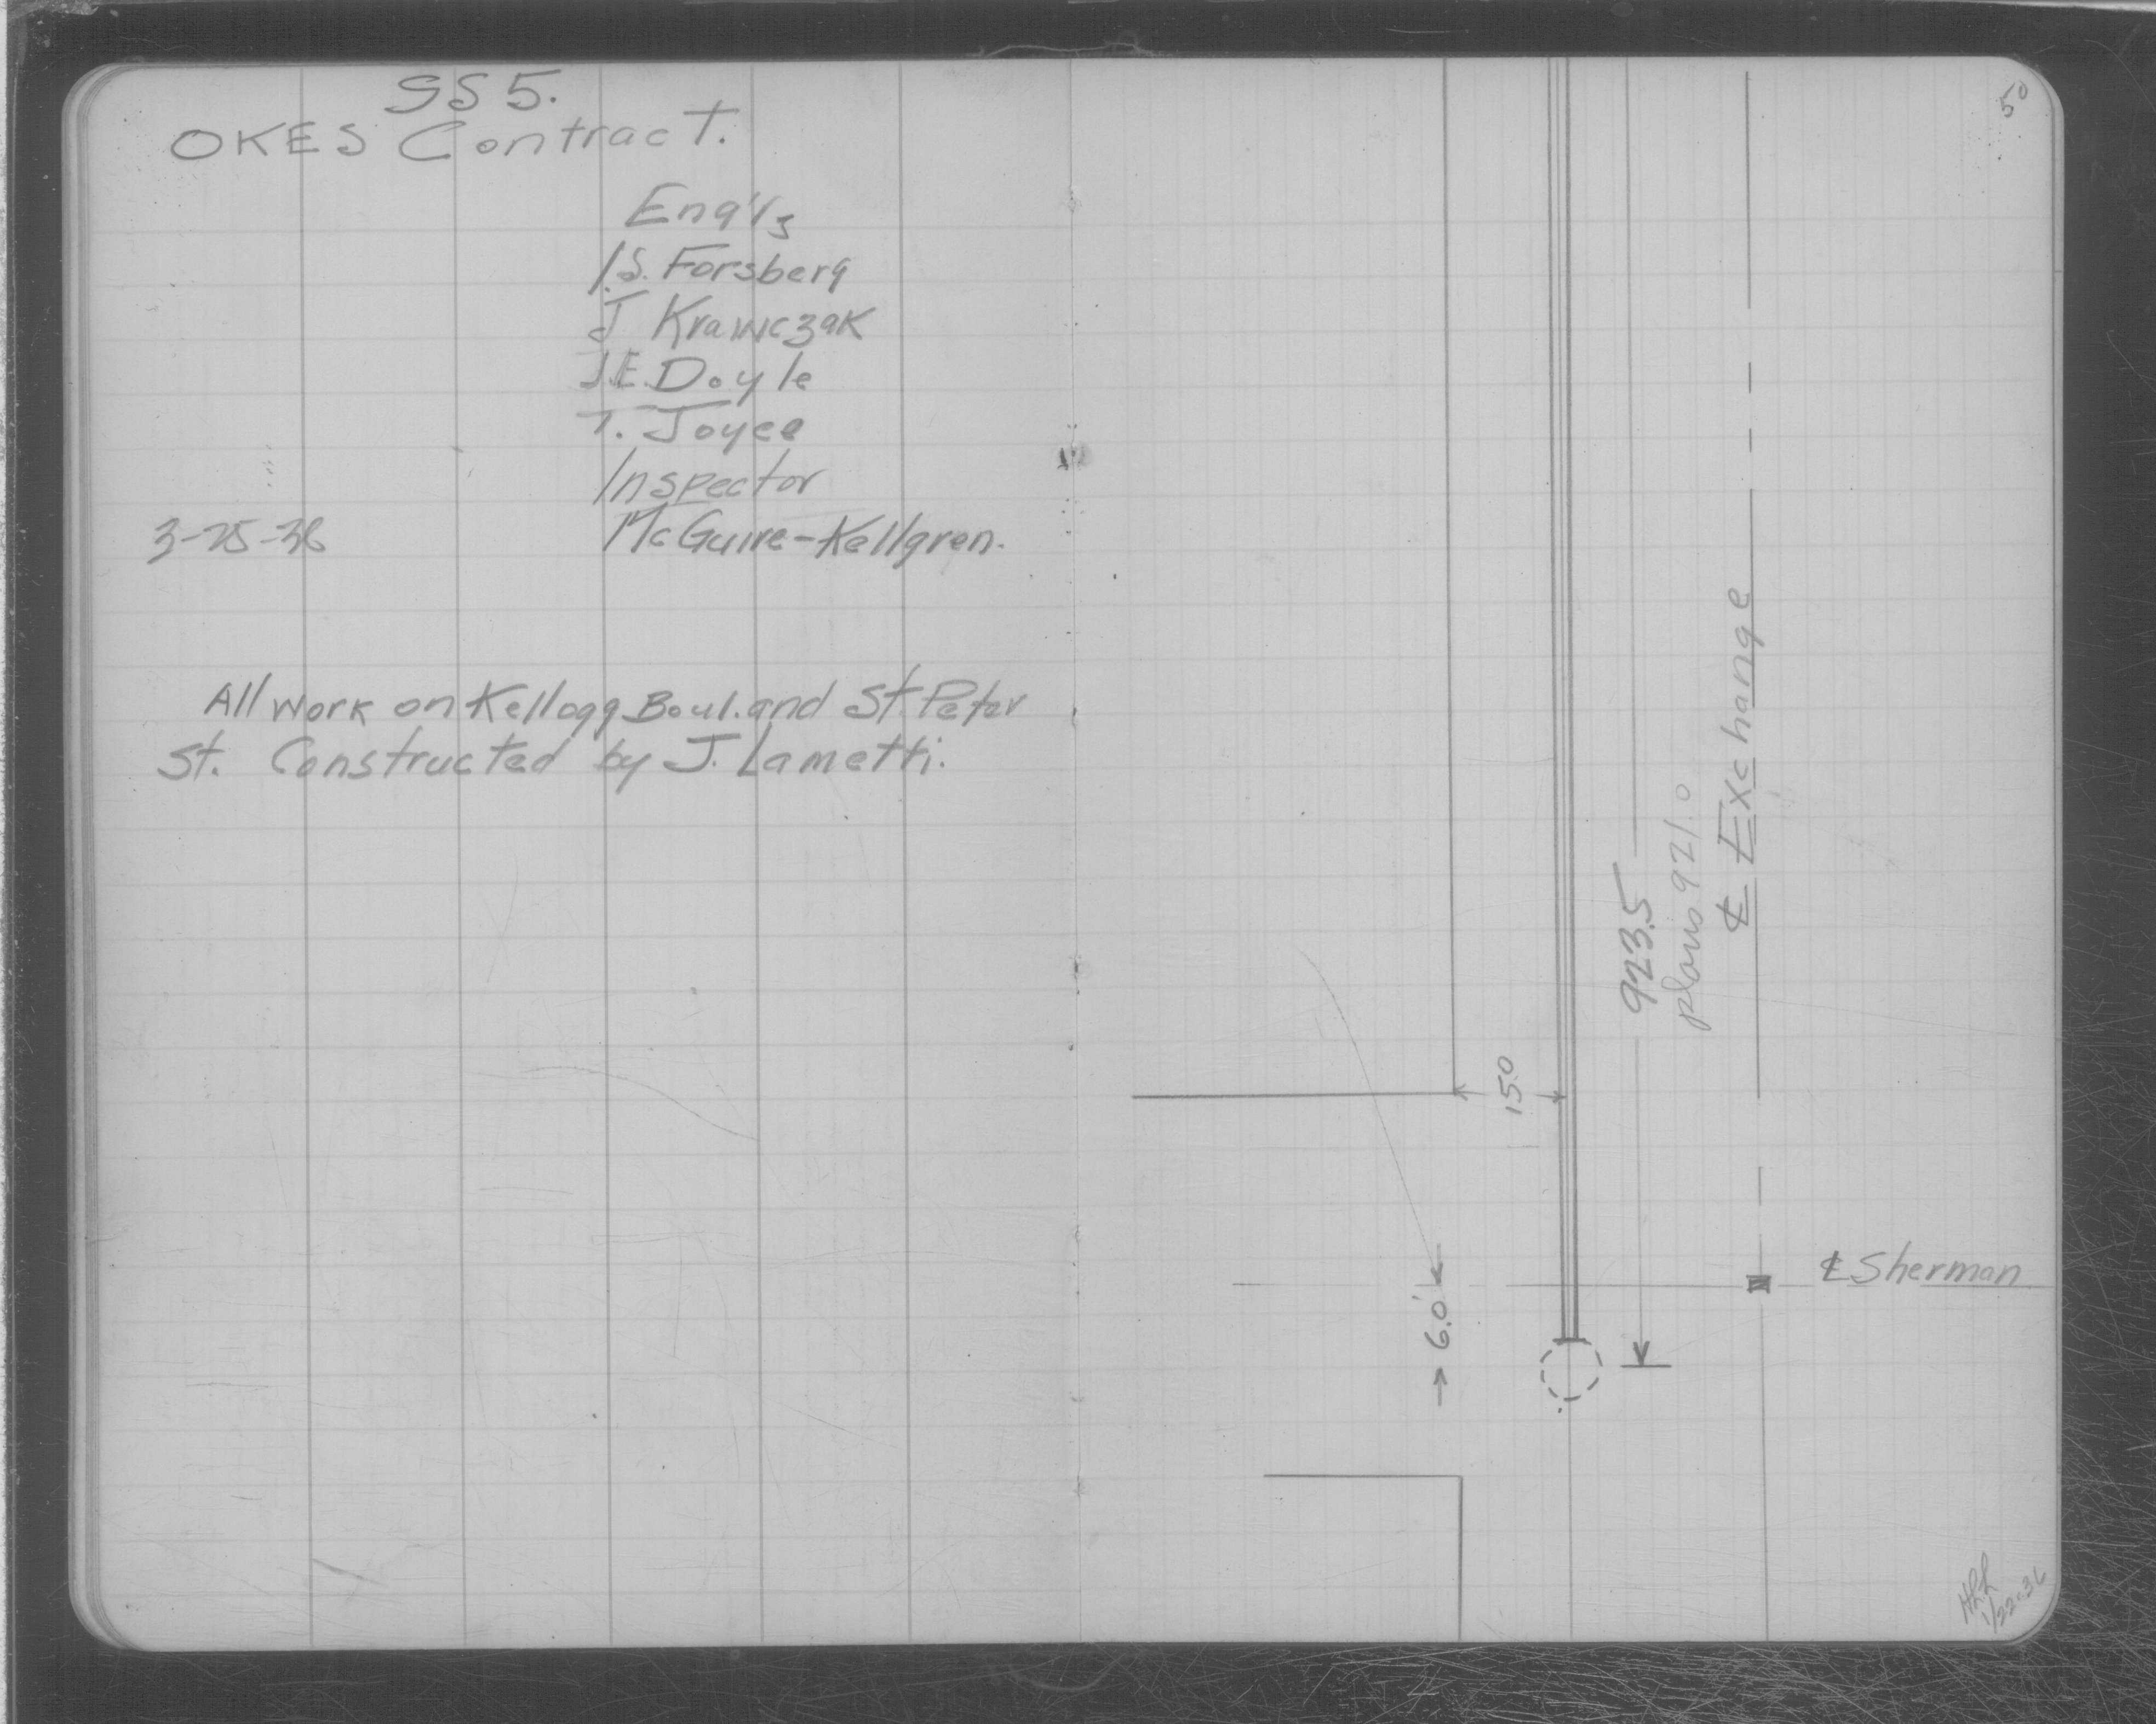 SS 5.
OKES Contract.
Eng'rs
I.S. Forsberg
J Krawczak
J.E. Doyle
T. Joyce
Inspector
3-25-36 McGuire-Kellgren.
All work on Kellogg Boul. and St. Peter
St. Constructed by J. Lametti.
50
℄ Exchange
923.5
plans 921.0
15.0
℄ Sherman
6.0'
1/22-36